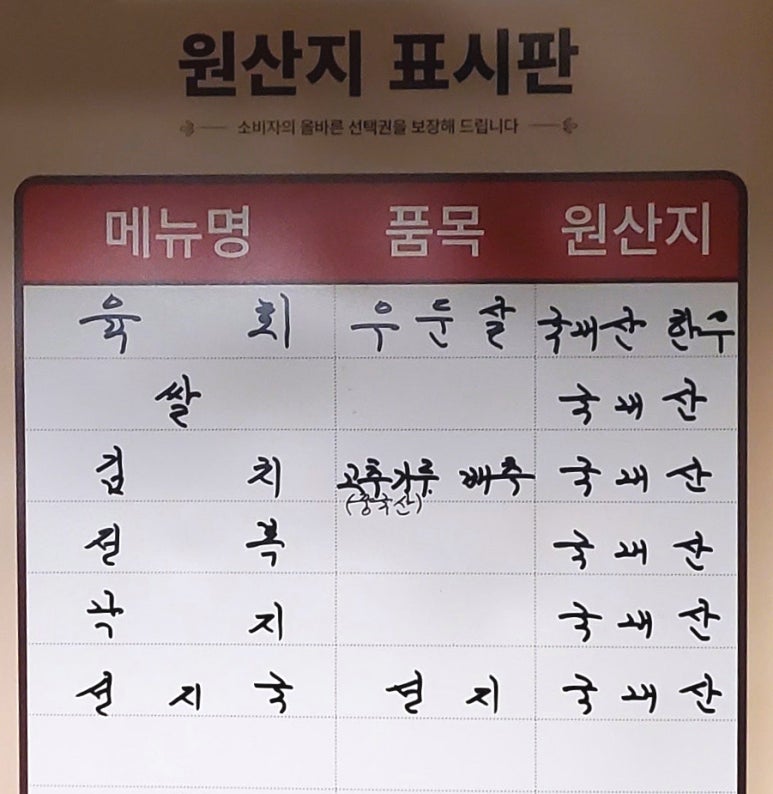 원산지 표시판
소비자의 올바른 선택권을 보장해 드립니다
메뉴명 품목 원산지
육회 우둔살 국내산 한우
쌀 국내산
김치 고추가루 배추 국내산
(중국산)
전복 국내산
낙지 국내산
선지국 선지 국내산